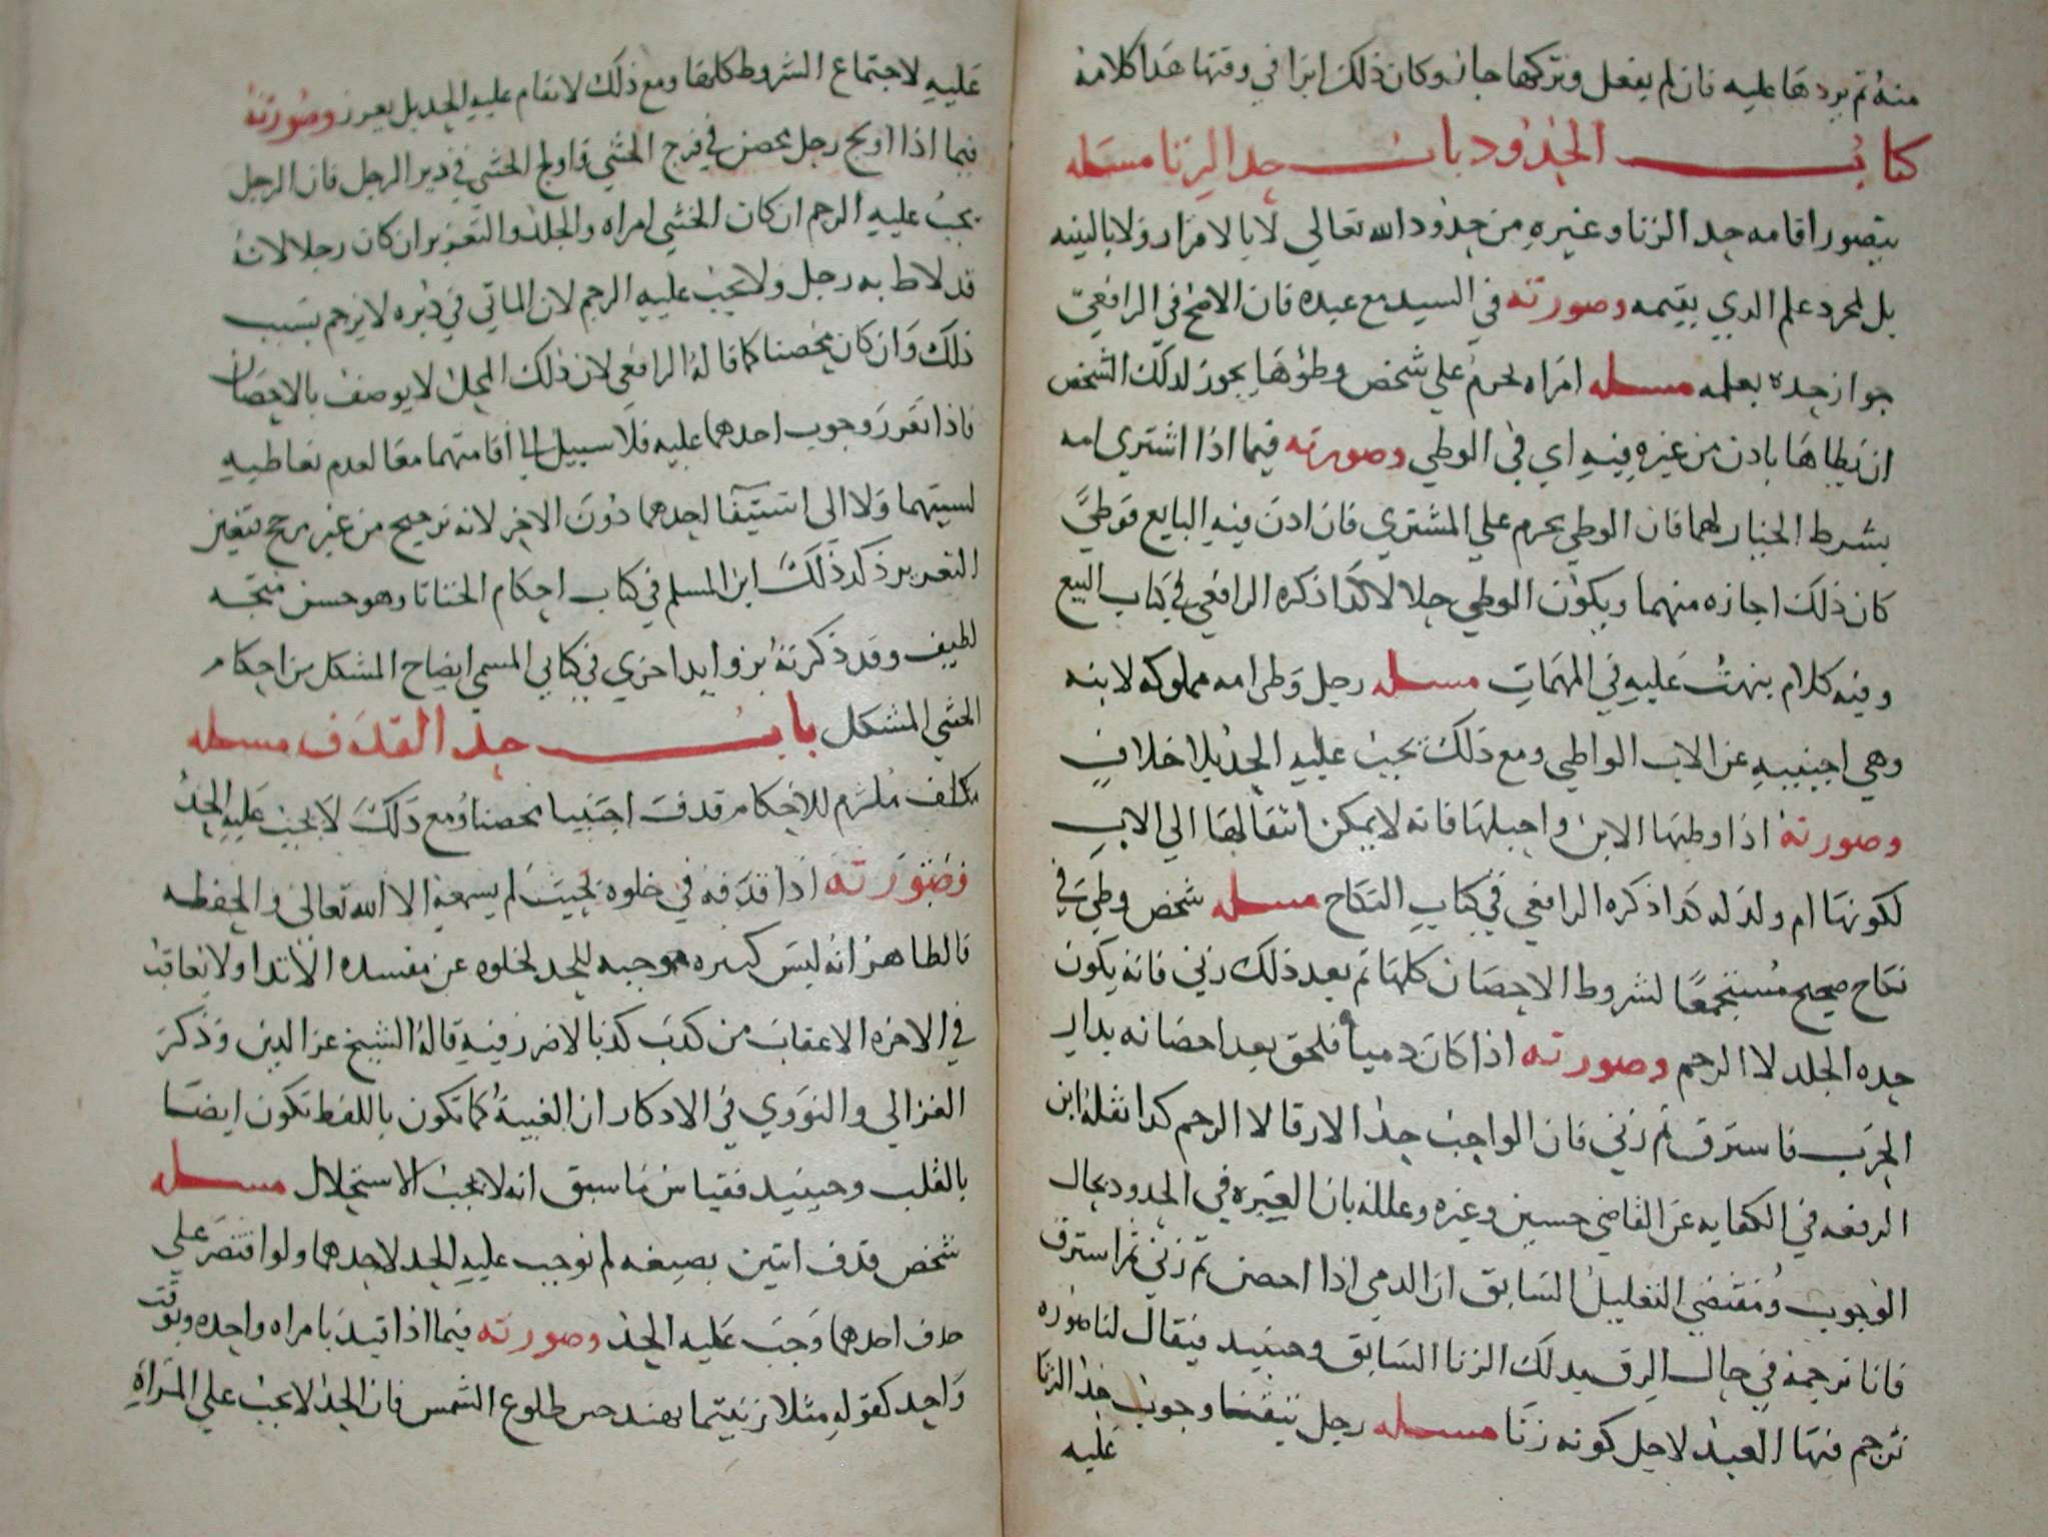 منه ثم يردها عليه فان لم يفعل وتركها جاز وكان ذلك ابرا في وقتها هذا كلامه
كتاب الحدود باب حد الزنا مسله
يتصور اقامه حد الزنا وغيره من حدود الله تعالي لا بالاقرار ولا بالبينه
بل لمجرد علم الدي يقيمه وصورته في السيد مع عبده فان الاصح في الرافعي
جواز حده بعلمه مسله امراه تحرم علي شخص وطوها يجوز لدلك الشخص
ان يطاها بادن من غيره فيه اي في الوطي وصورته فيما اذا اشتري امه
بشرط الخيار لهما فان الوطي يحرم علي المشتري فان ادن فيه البايع فوطي
كان ذلك اجازه منهما ويكون الوطي حلالا كذا ذكره الرافعي في كتاب البيع
وفيه كلام بنهت عليه في المهمات مسله رجل وطي امه مملوكه لابنه
وهي اجنبيه عن الاب الواطي ومع ذلك يجب عليه الحد بلا خلاف
وصورته اذا وطيها الابن واحبلها فانه لا يمكن انتقالها الي الاب
لكونها ام ولد له كدا ذكره الرافعي في كتاب النكاح مسله شخص وطي في
نكاح صحيح مستجمعا لشروط الاحصان كلها ثم بعد ذلك زني فانه يكون
حده الجلد لا الرجم وصورته اذا كان دميا فلحق بعد احصانه بدار
الحرب فاسترق ثم زني فان الواجب حد الارقا لا الرجم كدا نقله ابن
الرفعه في الكفايه عن القاضي حسين وغيره وعلله بان العبره في الحدود بحال
الوجوب ومقتضي التعليل السابق ان الدمي اذا احصن ثم زني ثم استرق
فانا نرجمه في حال الرق بدلك الزنا السابق وحينيد فيقال لنا صوره
نرجم فيها العبد لاجل كونه زنا مسله رجل وجوب حد الزنا
عليه
عليه لاجتماع الشروط كلها ومع ذلك لا نقام عليه الحد بل يعزر وصورته
فيما اذا اولج رجل محصن في فرج الخنثي واولج الخنثي في دبر الرجل فان الرجل
يجب عليه الرجم ان كان الخنثي امراه والجلد والتعزير ان كان رجلا لانه
قد لاط به رجل ولا يجب عليه الرجم لان الماتي في دبره لا يرجم بسبب
ذلك وان كان محصنا كما قاله الرافعي لان ذلك المحل لا يوصف بالاحصان
فاذا تقرر وجوب احدهما عليه فلا سبيل الي اقامتهما معا لعدم تعاطيه
لسببهما ولا الي استيفا احدهما دون الاخر لانه ترجيح من غير مرجح فتعين
التعزير ذكر ذلك ابن المسلم في كتاب احكام الخناثا وهو حسن متجه
لطيف وقد ذكرته بزوايد اخري في كتابي المسمي ايضاح المشكل من احكام
الخنثي المشكل باب حد القدف مسله
مكلف ملتزم للاحكام قدف اجنبيا محصنا ومع ذلك لا يجب عليه الحد
وصورته اذا قدفه في خلوه بحيث لم يسمعه الا الله تعالي والحفظه
فالظاهر انه ليس كبيره موجبه للحد لخلوه عن مفسده الايدا ولا يعاقب
في الاخره الا عقاب من كدب كدبا لا ضرر فيه قاله الشيخ عز الدين وذكر
الغزالي والنووي في الادكار ان الغيبه كما تكون باللفظ تكون ايضا
بالقلب وحينيد فقياس ما سبق انه لا يجب الاستحلال مسله
شخص قدف اثنين بصيغه لم نوجب عليه الحد لاحدهما ولو اقتصر علي
حدف احدهما وجب عليه الحد وصورته فيما اذا قيد بامراه واحده وبوقت
واحد كقوله مثلا زنيتما بهند حين طلوع الشمس فان الحد لا يجب علي المراه